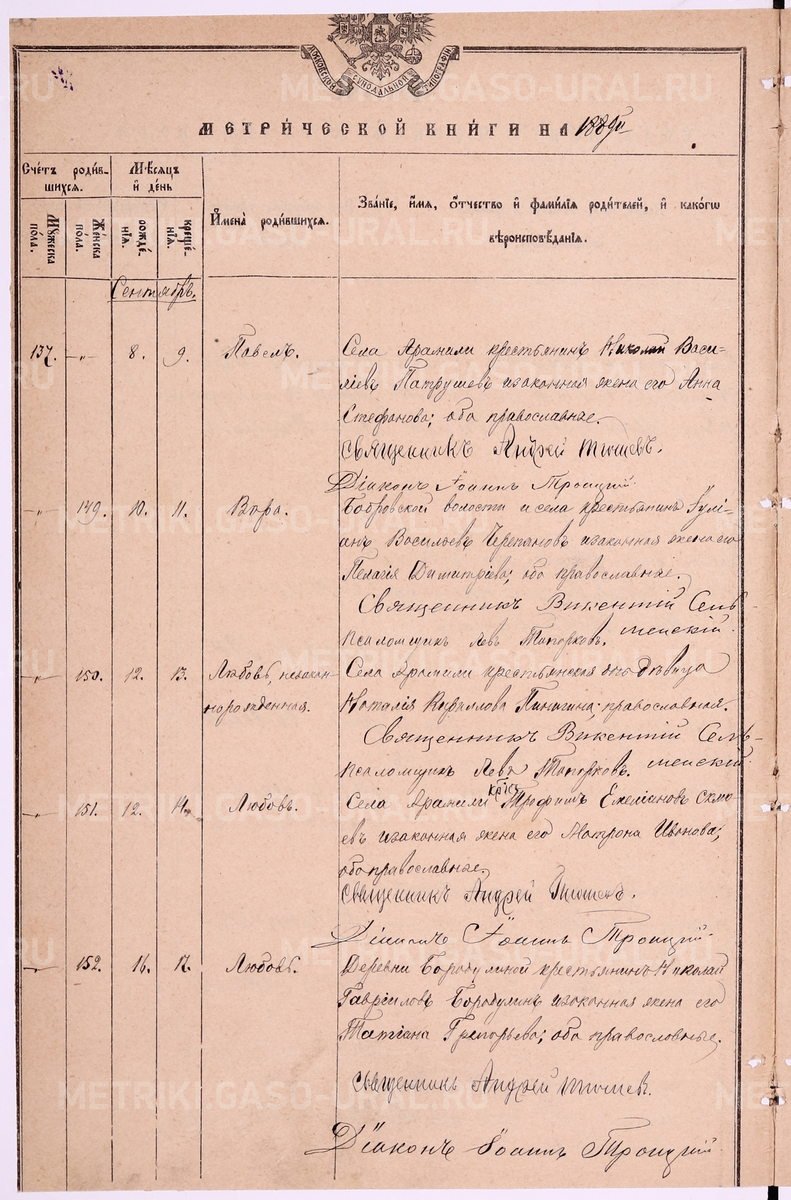 МОСКОВСКОЙ СѴНОДАЛЬНОЙ ТИПОГРАФІИ
МЕТРИ́ЧЕСКОЙ КНИ́ГИ НА 1889й
Сче́тъ роди́вшихся.
Мѣ́сяцъ и҆ де́нь
И҆мена̀ роди́вшихся.
Зва́нїе, и҆́мя, ѻ҆́тчество и҆ фами́лїя роди́телей, и҆ како́гѡ вѣроисповѣ́данїя.
Мꙋ́жеска по́ла.
Же́нска по́ла.
рожде́нїя.
креще́нїя.
Сентябрь.
137. -„- 8. 9. Павелъ. Села Арамили крестьянинъ Николай Васи-
ліевъ Патрушевъ и законная жена его Анна
Стефанова; оба православные.
Священникъ Андрей
Діаконъ Іоаннъ Троицкій
-„- 149. 10. 11. Вѣра. Бобровской волости и села крестьянинъ Іулі-
анъ Васильевъ Черепановъ и законная жена его
Пелагія Димитріева; оба православные.
Священникъ Викентій Сель-
менскій.
Псаломщикъ Левъ Топорковъ.
-„- 150. 12. 13. Любовь, незакон-
норожденная. Села Арамили крестьянская дѣвица
Наталія Кириллова православная.
Священникъ Викентій Сель-
менскій
Псаломщикъ Левъ Топорковъ.
-„- 151. 12. 14. Любовь. Села Арамили крест. Трофимъ Емеліановъ
евъ и законная жена его Матрона Иванова;
оба православные.
Священникъ Андрей
Діаконъ Іоаннъ Троицкій
-„- 152. 16. 17. Любовь. Деревни Бородулиной крестьянинъ Николай
Гавріиловъ Бородулинъ и законная жена его
Татіана Григорьева; оба православные.
Священникъ Андрей
Діаконъ Іоаннъ Троицкій
METRIKI.GASO-URAL.RU